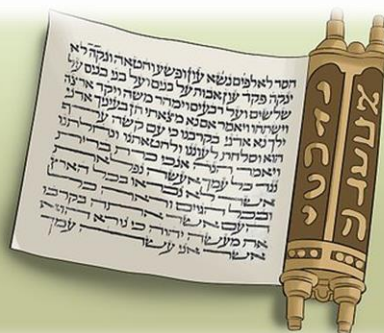 חסד לאלפים נשא עון ופשע וחטאה ונקה לא
ינקה פקד עון אבות על בנים ועל בני בנים על
שלשים ועל רבעים וימהר משה ויקד ארצה
וישתחו ויאמר אם נא מצאתי חן בעיניך אדני
ילך נא אדני בקרבנו כי עם קשה ערף
הוא וסלחת לעוננו ולחטאתנו ונחלתנו
ויאמר הנה אנכי כרת ברית
נגד כל עמך אעשה נפלאת
אשר לא נבראו בכל הארץ
ובכל הגוים וראה כל
העם אשר אתה בקרבו
את מעשה יהוה כי נורא הוא
אשר אני עשה עמך